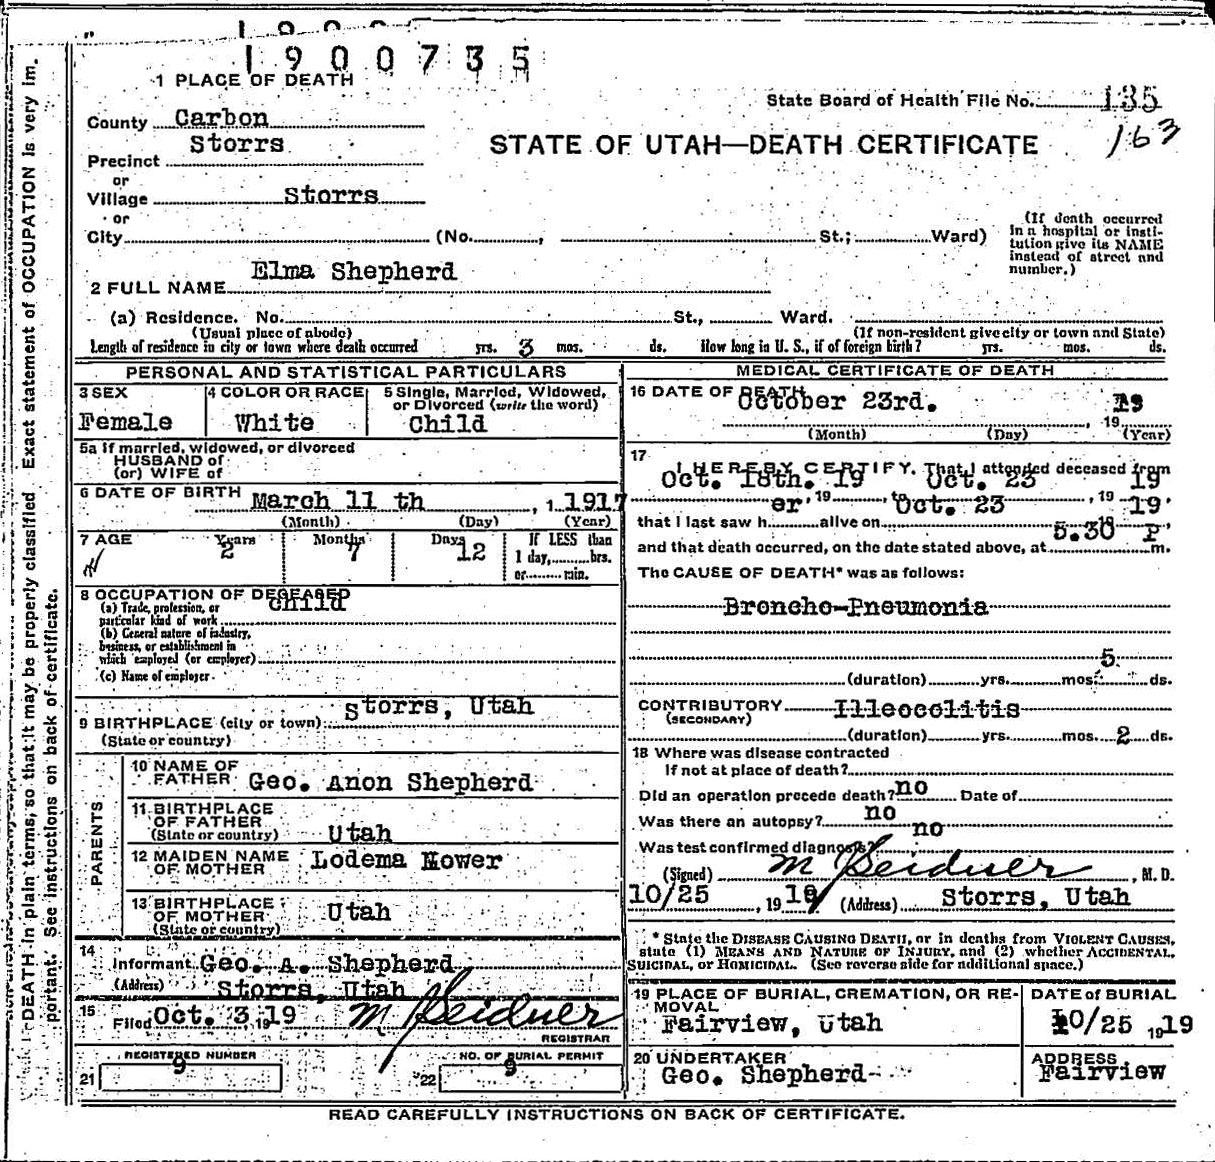 1900735
1 PLACE OF DEATH
State Board of Health File No. 135
County Carbon
163
STATE OF UTAH—DEATH CERTIFICATE
Precinct Storrs
or
Village Storrs
or
City (No. , St.; Ward)
(If death occurred
in a hospital or insti-
tution give its NAME
instead of street and
number.)
2 FULL NAME Elma Shepherd
(a) Residence. No. St., Ward.
(Usual place of abode) (If non-resident give city or town and State)
Length of residence in city or town where death occurred yrs. 3 mos. ds. How long in U. S., if of foreign birth? yrs. mos. ds.
PERSONAL AND STATISTICAL PARTICULARS
3 SEX 4 COLOR OR RACE 5 Single, Married, Widowed,
or Divorced (write the word)
Female White Child
5a If married, widowed, or divorced
HUSBAND of
(or) WIFE of
6 DATE OF BIRTH March 11 th , 1 1917
(Month) (Day) (Year)
7 AGE Years Months Days If LESS than
2 7 12 1 day, hrs.
or min.
8 OCCUPATION OF DECEASED
child
(a) Trade, profession, or
particular kind of work
(b) General nature of industry,
business, or establishment in
which employed (or employer)
(c) Name of employer
9 BIRTHPLACE (city or town) Storrs, Utah
(State or country)
PARENTS
10 NAME OF
FATHER Geo. Anon Shepherd
11 BIRTHPLACE
OF FATHER
(State or country) Utah
12 MAIDEN NAME
OF MOTHER Lodema Mower
13 BIRTHPLACE
OF MOTHER Utah
(State or country)
14
Informant Geo. A. Shepherd
(Address) Storrs, Utah
15
Filed Oct. 3, 19 19 M Seidner
REGISTRAR
REGISTERED NUMBER NO. OF BURIAL PERMIT
21 9 22 9
MEDICAL CERTIFICATE OF DEATH
16 DATE OF DEATH October 23rd. 19
, 19
(Month) (Day) (Year)
17
I HEREBY CERTIFY, That I attended deceased from
Oct. 18th. 19 Oct. 23 19
, 19 , to , 19
that I last saw h er alive on Oct. 23 19
and that death occurred, on the date stated above, at 5.30 P m.
The CAUSE OF DEATH* was as follows:
Broncho-Pneumonia
5
(duration) yrs. mos. ds.
CONTRIBUTORY Illeocolitis
(SECONDARY)
(duration) yrs. mos. 2 ds.
18 Where was disease contracted
If not at place of death?
Did an operation precede death? no Date of
Was there an autopsy? no
Was test confirmed diagnosis? no
(Signed) M Seidner , M. D.
10/25 , 19 19 (Address) Storrs, Utah
* State the DISEASE CAUSING DEATH, or in deaths from VIOLENT CAUSES,
state (1) MEANS AND NATURE OF INJURY, and (2) whether ACCIDENTAL,
SUICIDAL, or HOMICIDAL. (See reverse side for additional space.)
19 PLACE OF BURIAL, CREMATION, OR RE-
MOVAL
Fairview, Utah
DATE of BURIAL
10/25 19 19
20 UNDERTAKER
Geo. Shepherd
ADDRESS
Fairview
READ CAREFULLY INSTRUCTIONS ON BACK OF CERTIFICATE.
DEATH in plain terms, so that it may be properly classified. Exact statement of OCCUPATION is very im-
portant. See instructions on back of certificate.